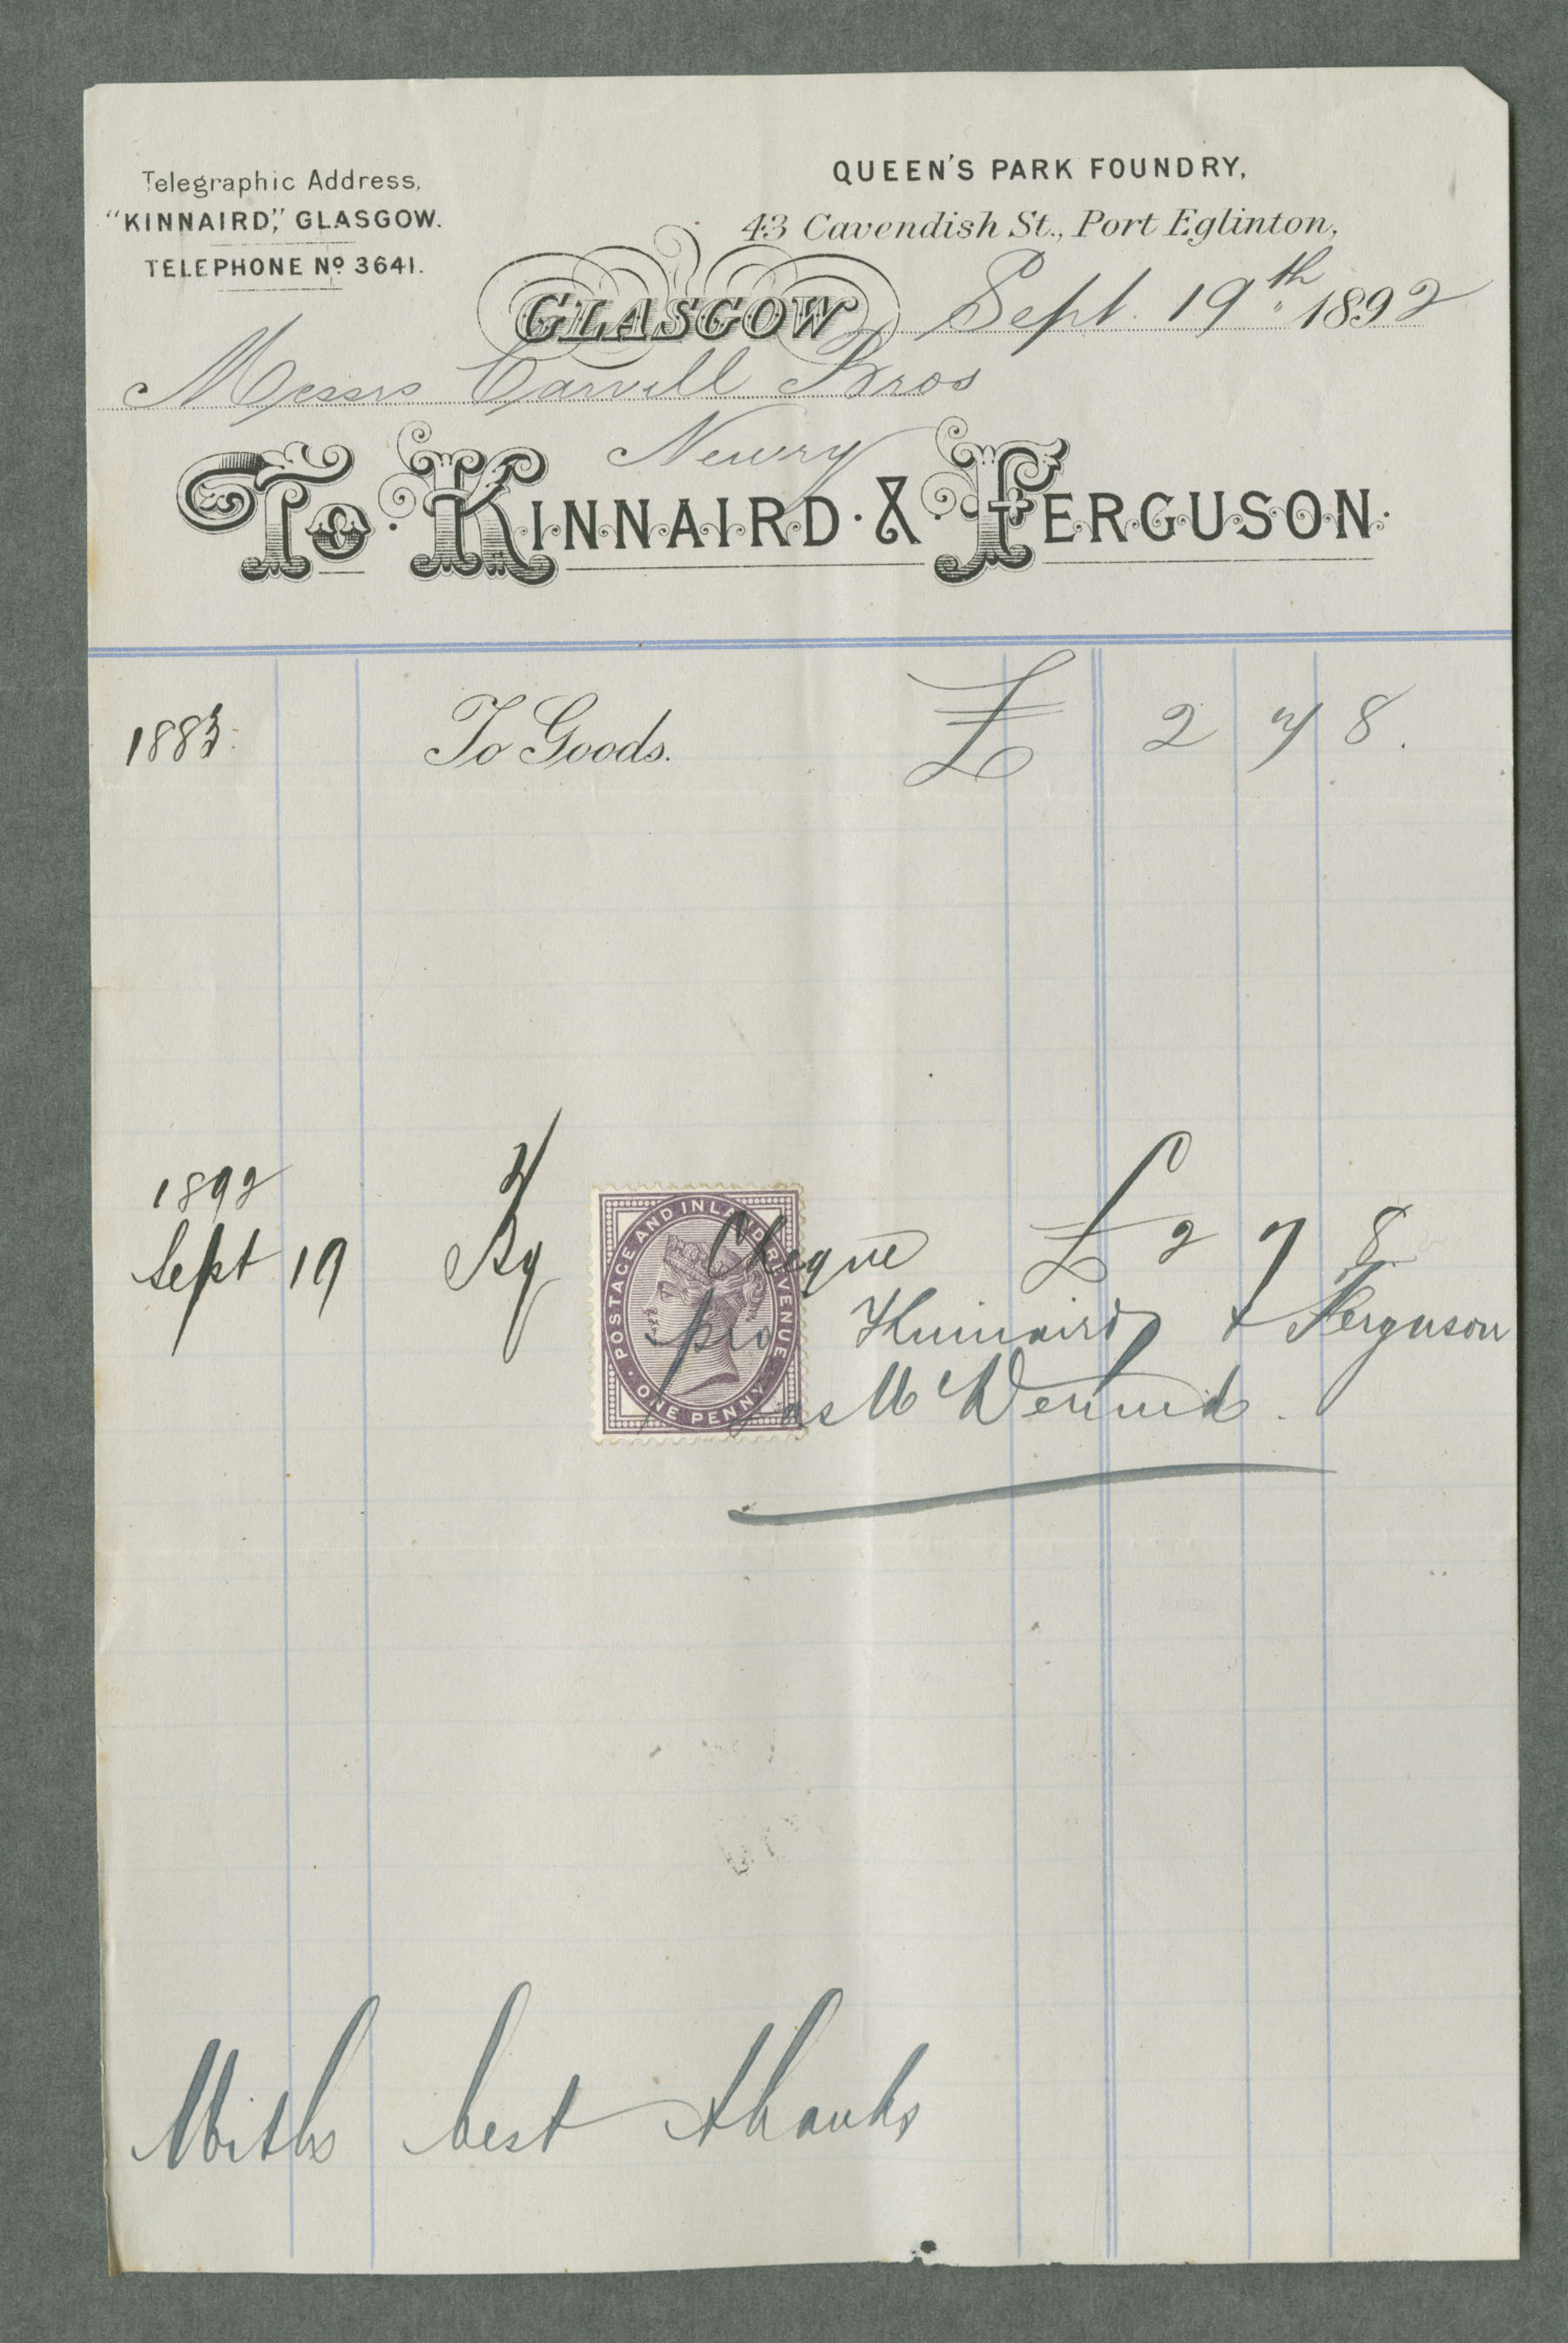 Telegraphic Address,
"KINNAIRD," GLASGOW.
TELEPHONE No 3641.
QUEEN'S PARK FOUNDRY,
43 Cavendish St., Port Eglinton,
GLASGOW Sept. 19th 1892
Messrs Carvill Bros
Newry
To KINNAIRD & FERGUSON.
1883. To Goods. £ 2 7 8.
1892
Sept 19 By Cheque £ 2 7 8
POSTAGE AND INLAND REVENUE
ONE PENNY
pro Kinnaird & Ferguson
Jas Mc
With best thanks